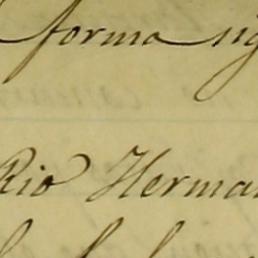 forma sig
Rio Herman